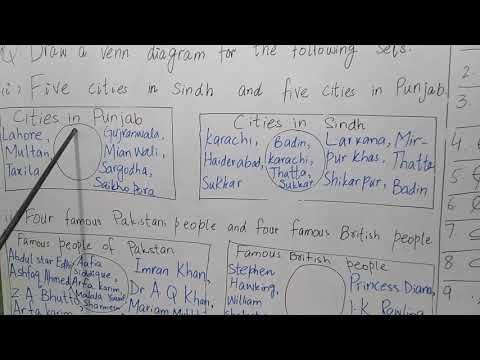 Q: Draw a venn diagram for the following sets.
ii) Five cities in Sindh and five cities in Punjab
Cities in Punjab
Lahore,
Multan
Taxila
Gujranwala,
Mianwali,
Sargodha,
Saikhopora
Cities in Sindh
Karachi,
Haiderabad,
Sukkar
Badin,
karachi,
Thatta,
Sukkar
Larkana, Mir-
pur khas, Thatta
Shikarpur, Badin
Four famous Pakistani people and four famous British people
Famous people of Pakstan
Abdul star Edhi
Ashfaq Ahmed
Z A Bhutto
Arfa karim
Aafia
Siddique,
Arfa karim,
Malala
Sharmeen
Imran Khan,
Dr A Q Khan,
Mariam
Famous British people
Stephen
Hawking,
William
Princess Diana,
J.K Rawling
2.
3.
4.
5
6
7.
8
9